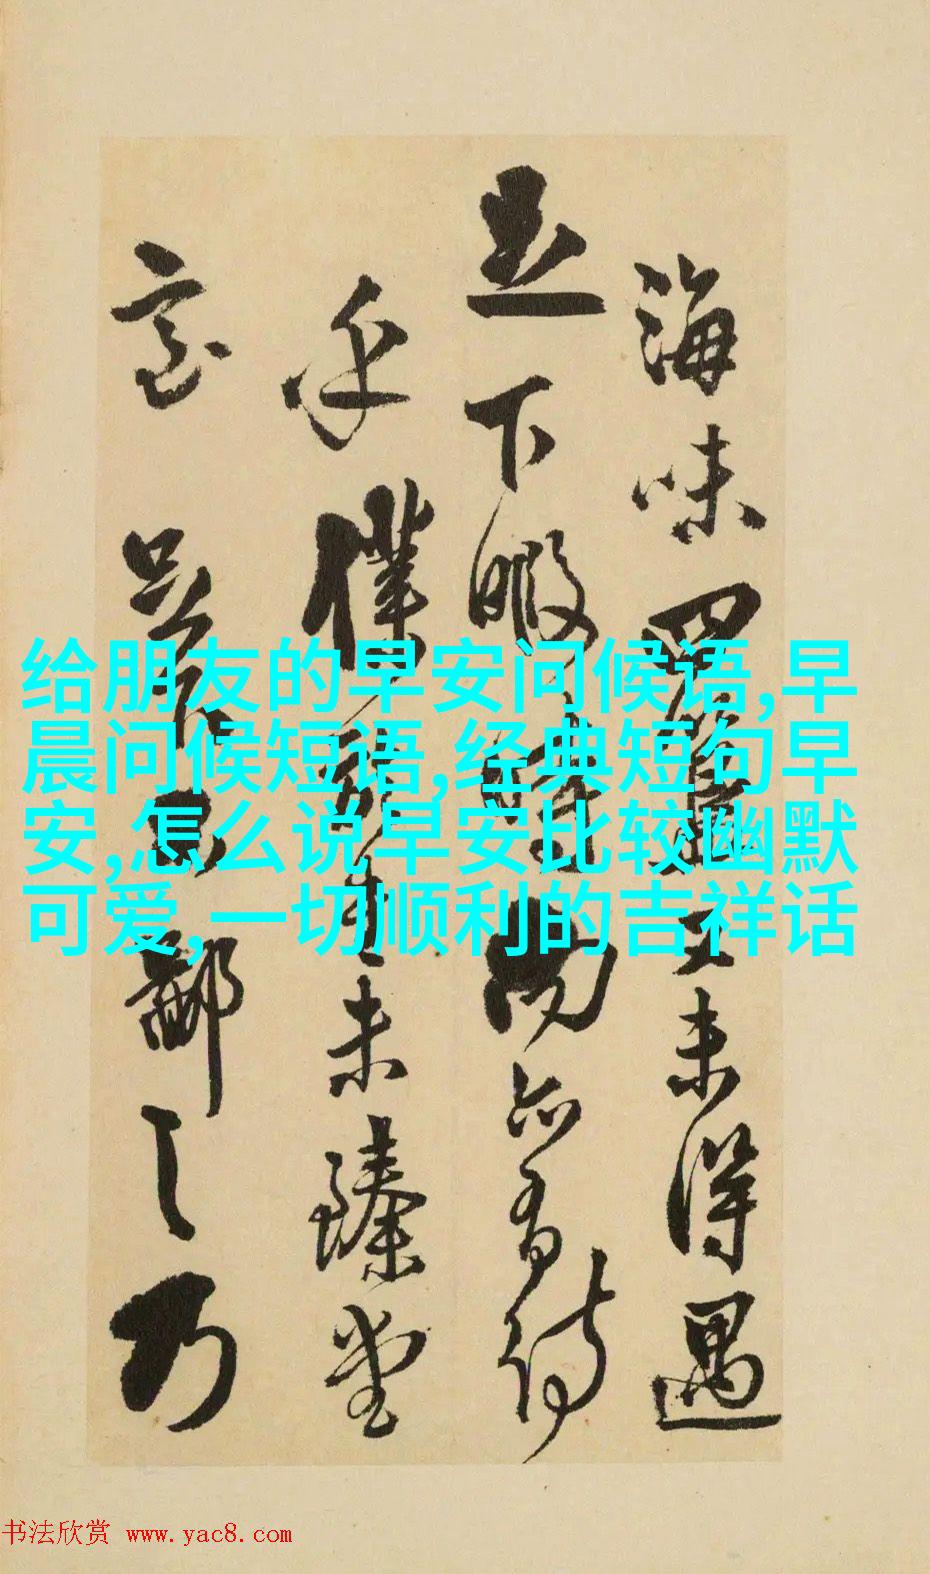 海味罗[...]又未得遇
足下暇[...]尚亦有待
乎仆[...]未臻堂
室[...]鄙之乃
给朋友的早安问候语,早
晨问候短语,经典短句早
安,怎么说早安比较幽默
可爱,一切顺利的吉祥话
书法欣赏 www.yac8.com